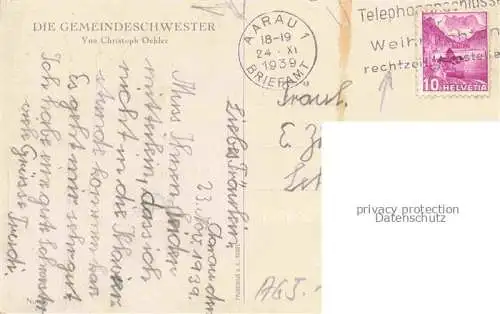 DIE GEMEINDESCHWESTER
Von Christoph Oehler
AARAU 1
18-19
24. XI
1939
BRIEFAMT
Telephonanschlüsse
Weih
rechtzei
10 HELVETIA
Aarau den
23. Nov. 1939.
Liebes Fräulein,
Muss Ihnen leider
mitteilen, dass ich
nicht in die Klavier-
stunde kommen kan
Es geht mir sehr gut
Ich habe eine gute
viele Grüsse Trudi.
Fräul.
E. Z
privacy protection
Datenschutz